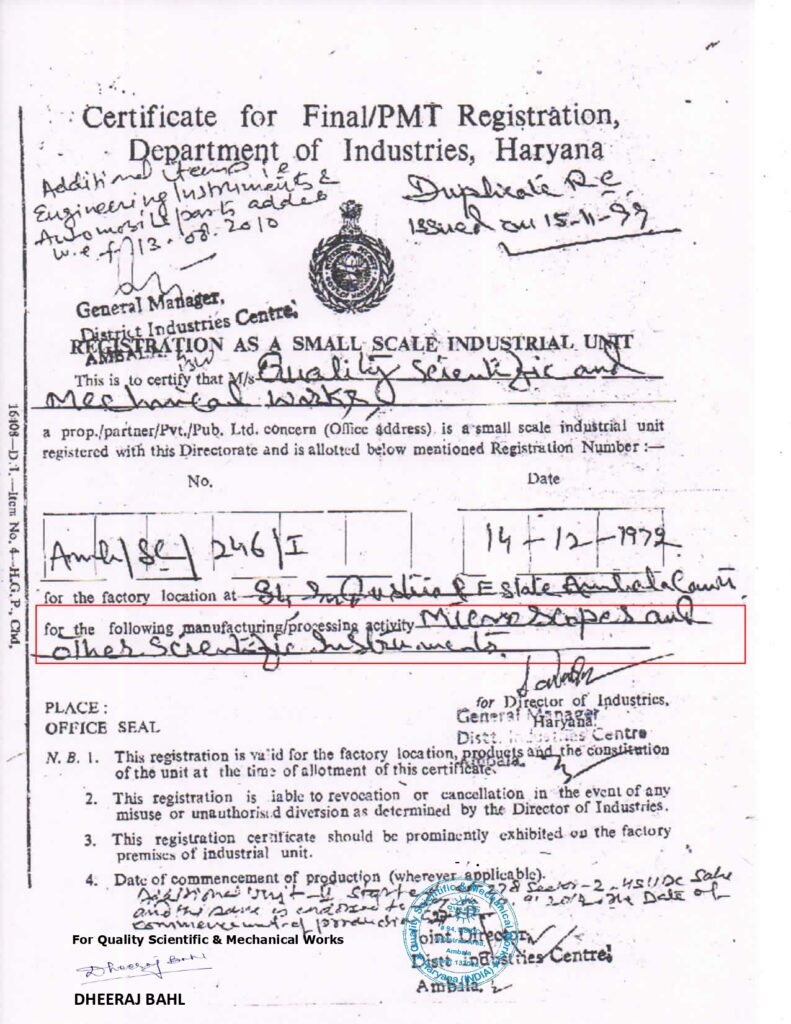 Certificate for Final/PMT Registration,
Department of Industries, Haryana
Additional items i.e
Engineering Instruments &
Automobile parts added
w.e.f. 13.08.2010
Duplicate R.C.
Issued on 15-11-99
General Manager,
District Industries Centre,
AMBALA.
REGISTRATION AS A SMALL SCALE INDUSTRIAL UNIT
This is to certify that M/s Quality Scientific and
Mechnical Works
a prop./partner/Pvt./Pub. Ltd. concern (Office address) is a small scale industrial unit
registered with this Directorate and is allotted below mentioned Registration Number :—
No. Date
Amb/SC/ 246/I 14-12-1972
for the factory location at 84 Industrial Estate Ambala Cantt.
for the following manufacturing/processing activity Microscopes and
other Scientific Instruments.
for Director of Industries,
Haryana.
General Manager
Distt. Industries Centre
Ambala.
PLACE :
OFFICE SEAL
N. B. 1. This registration is valid for the factory location, products and the constitution
of the unit at the time of allotment of this certificate.
2. This registration is liable to revocation or cancellation in the event of any
misuse or unauthorised diversion as determined by the Director of Industries.
3. This registration certificate should be prominently exhibited on the factory
premises of industrial unit.
4. Date of commencement of production (wherever applicable).
Additional Unit-II at 278 Sector-2
and the same is Date of
commencement of production
For Quality Scientific & Mechanical Works
Dheeraj Bahl
DHEERAJ BAHL
Joint Director,
Distt Industries Centre,
Ambala.
Quality Scientific & Mechanical Works
Ambala
Haryana (INDIA)
16408—D.I.—Item No. 4—H.G.P., Chd.